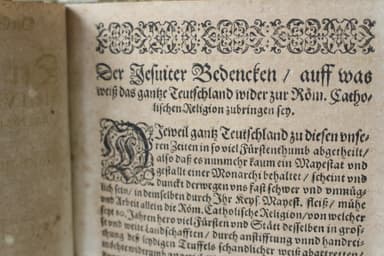 Der Jesuiter Bedencken / auff was
weiß das gantze Teutschland wider zur Röm. Catho-
lischen Religion zubringen sey.
DJeweil gantz Teutschland zu diesen unse-
ren Zeiten in so viel Fürstenthumb abgetheilt /
also daß es nunmehr kaum ein Mayestat und
gestalt einer Monarchi behaltet / scheint und
dunckt derwegen uns fast schwer und unmüg-
lich sein / in demselben durch Ihr Keys. Mayest. fleiß / mühe
und Arbeit allein die Röm. Catholische Religion / von welcher
seyt 80. Jahren hero viel Fürsten und Stätt desselben in gros-
se und weite Landschafften / durch anstifftung unnd handrei-
chung deß leydigen Teuffels schandlicher weiß abgetretten /